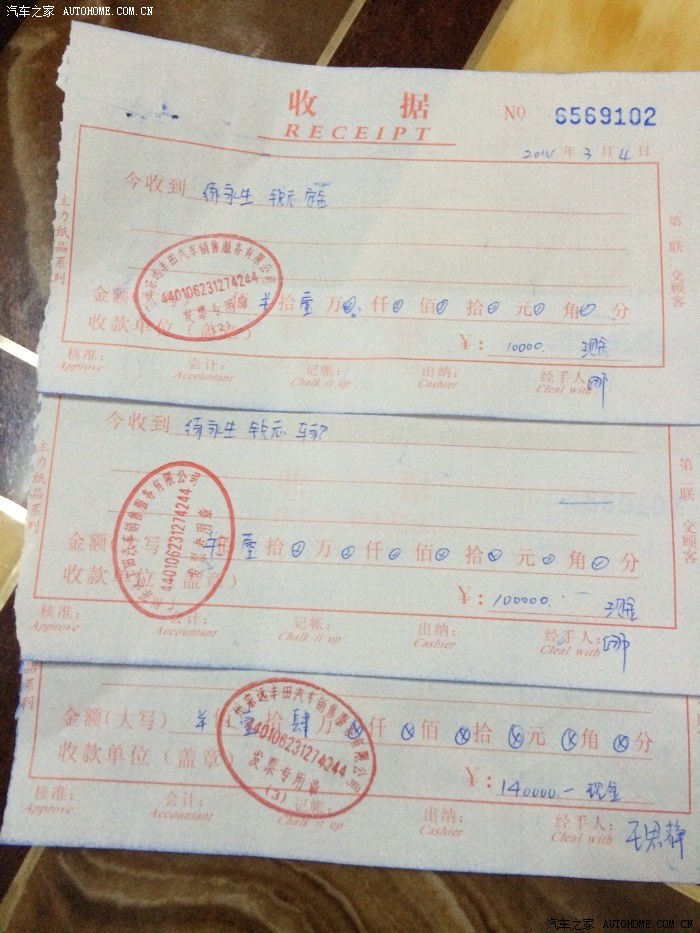 汽车之家 AUTOHOME.COM.CN
收 据
RECEIPT
№ 6569102
2014 年 3 月 4 日
今收到 练永生
主力纸品系列
第二联:交顾客
丰田汽车销售服务有限公司
440106231274244
发票专用章
金额 拾 壹 万 仟 佰 拾 元 角 分
收款单位(
¥: 10000. 现金
核准: 会计: 记帐: 出纳: 经手人:
Approve Accountant Chalk it up Cashier Cleal with
今收到 练永生
主力纸品系列
第二联:交顾客
丰田汽车销售服务有限公司
440106231274244
发票专用章
金额(大写 壹 拾 万 仟 佰 拾 元 角 分
收款单位(盖章)
¥: 100000. 现金
核准: 会计: 记帐: 出纳: 经手人:
Approve Accountant Chalk it up Cashier Cleal with
品系列
宗远丰田汽车销售服务有限公司
440106231274244
发票专用章
(3)
金额(大写) 佰 壹 拾 肆 万 仟 佰 拾 元 角 分
收款单位(盖章)
¥: 140000.一 现金
核准: 会计: 记帐: 出纳: 经手人:
Approve Accountant Chalk it up Cashier Cleal with
汽车之家 AUTOHOME.COM.CN